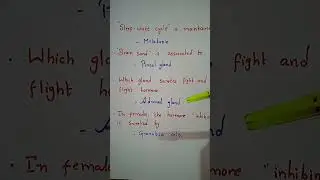 "Sleep wake cycle" is maintained
Melatonin
"Brain sand" is associated to
- Pineal gland
Which gland secretes fight and
flight hormone
- Adrenal gland
In females, the hormone "inhibin
is secreted by
- Granulosa cells
Which gl
flight hor
fight and
In female
"inhibin